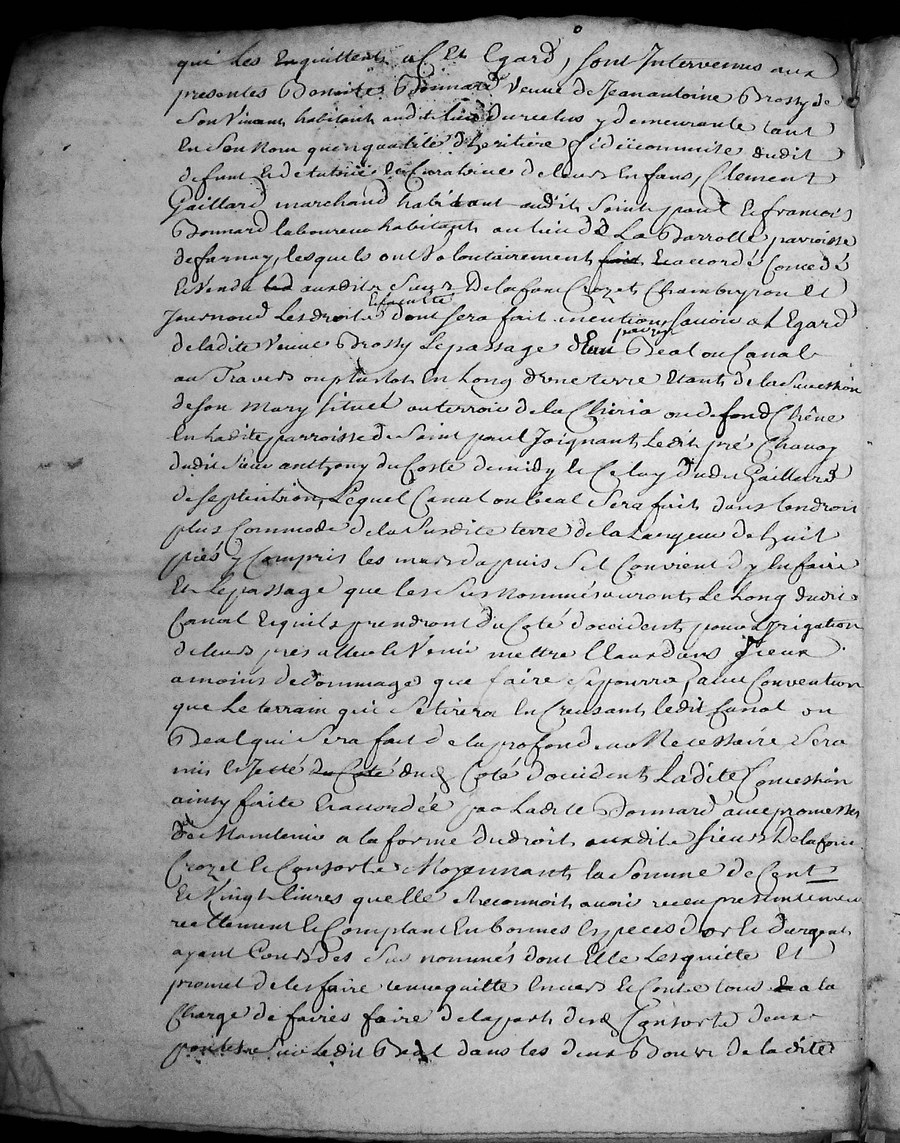 qui Les Enquittent a Cet Egard, sont Intervenus aux
presentes Benoite Bonnard veuve de Jean antoine Brossy de
son vivant habitant audit lieu du reclus y demeurante tant
En son nom qu'en qualité d'heritiere fideicommise dudit
defunt et de tutrice et Curatrice de leurs Enfans, Clement
Gaillard marchand habitant audit Saint paul et francois
Bonnard laboureur habitant au lieu de La Barrolle parroisse
de farnay, lesquels ont volontairement accordé Concedé
et vendu auxdits Sieurs Delafont Crozet Chambeyron et
Journoud les droits et faculté dont sera fait mention savoir a L'Egard
de ladite veuve Brossy le passage d'un Beal ou Canal
au Travers ou plustot en Long d'une terre Etant de la Succession
de son mary situeé au terroir de la Chiria ou de fond Chêne
en ladite parroisse de Saint paul Joignant ledit pré Chavas
dudit sieur anthony du Coste de midy et Celuy dudit Gaillard
de septentrion, Lequel Canal ou beal sera fait dans lendroit
plus Commode de la Susdite terre de la Largeur de huit
piés y Compris les murs d'apuis s'il Convient d'y En faire
Et le passage que les sus nommés auront Le Long dudit
Canal et quils prendront du Coté d'occident pour l'irrigation
de leurs prés aller et venir mettre l'eau dans Yceux
a moins de dommage que faire se pourra, avec Convention
que Le terrain qui se tirera En Creusant ledit Canal ou
Beal qui sera fait de la profondeur Necessaire sera
mis et Jetté du Coté dud Coté d'occident Ladite Concession
ainsy faite et accordée par Ladite Bonnard avec promesse
de Maintenir a la forme du droit auxdits sieurs Delafont
Crozet et Consorts Moyennant la Somme de Cent
et Vingt livres quelle reconnoit avoir receu presentement
reellement et Comptant En bonnes Especes d'or et d'argent
ayant Cours des sus nommés dont Elle les quitte Et
promet de les faire tenir quitte Envers et Contre tous a la
Charge de faires faire de la part desd Consorts deux
sur Ledit Beal dans les deux Bouts de ladite